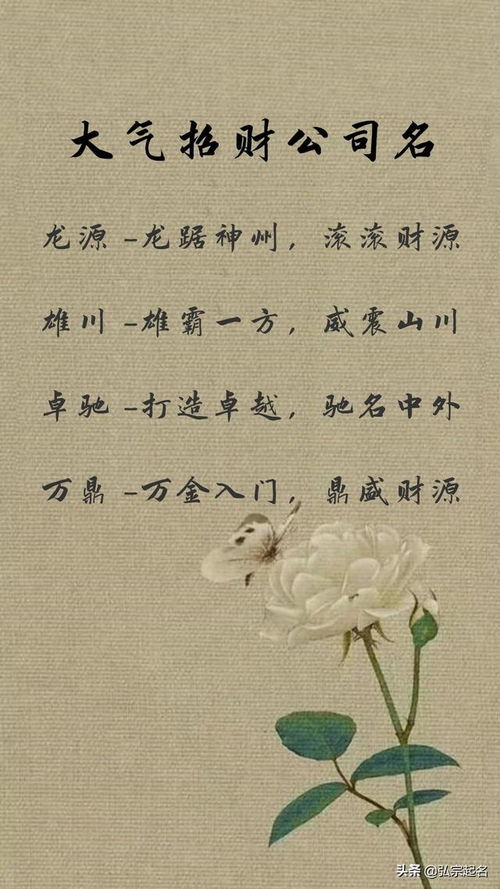 大气招财公司名
龙源 -龙踞神州，滚滚财源
雄川 -雄霸一方，威震山川
卓驰 -打造卓越，驰名中外
万鼎 -万金入门，鼎盛财源
头条 @弘宗起名